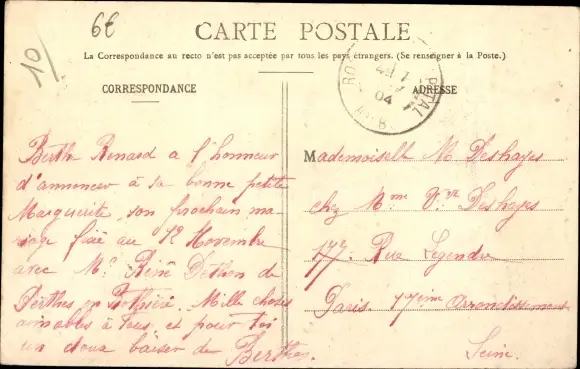 6€
10
CARTE POSTALE
La Correspondance au recto n'est pas acceptée par tous les pays étrangers. (Se renseigner à la Poste.)
CORRESPONDANCE
ADRESSE
04
Berthe Renard a l'honneur
d'annoncer à sa bonne petite
Marguerite, son prochain ma-
riage fixé au 12 Novembre
avec Mr René de
Berthes en Mille choses
aimables à tous, et pour toi
un doux baiser de Berthe.
Mademoiselle M Deshayes
chez Mme Vve Deshayes
177 Rue Legendre
Paris 17ième Arrondissement
Seine.